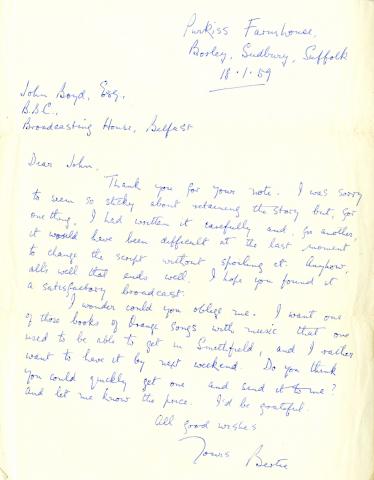 Purkiss Farmhouse,
Borley, Sudbury, Suffolk
18.1.59
John Boyd, Esq.
B.B.C.
Broadcasting House, Belfast
Dear John,
Thank you for your note. I was sorry
to seem so sticky about retaining the story but, for
one thing, I had written it carefully and, for another,
it would have been difficult at the last moment
to change the script without spoiling it. Anyhow,
alls well that ends well. I hope you found it
a satisfactory broadcast.
I wonder could you oblige me. I want one
of those books of Orange songs with music that one
used to be able to get in Smithfield, and I rather
want to have it by next weekend. Do you think
you could quickly get one and send it to me?
and let me know the price. I'd be grateful.
All good wishes
Yours Bertie